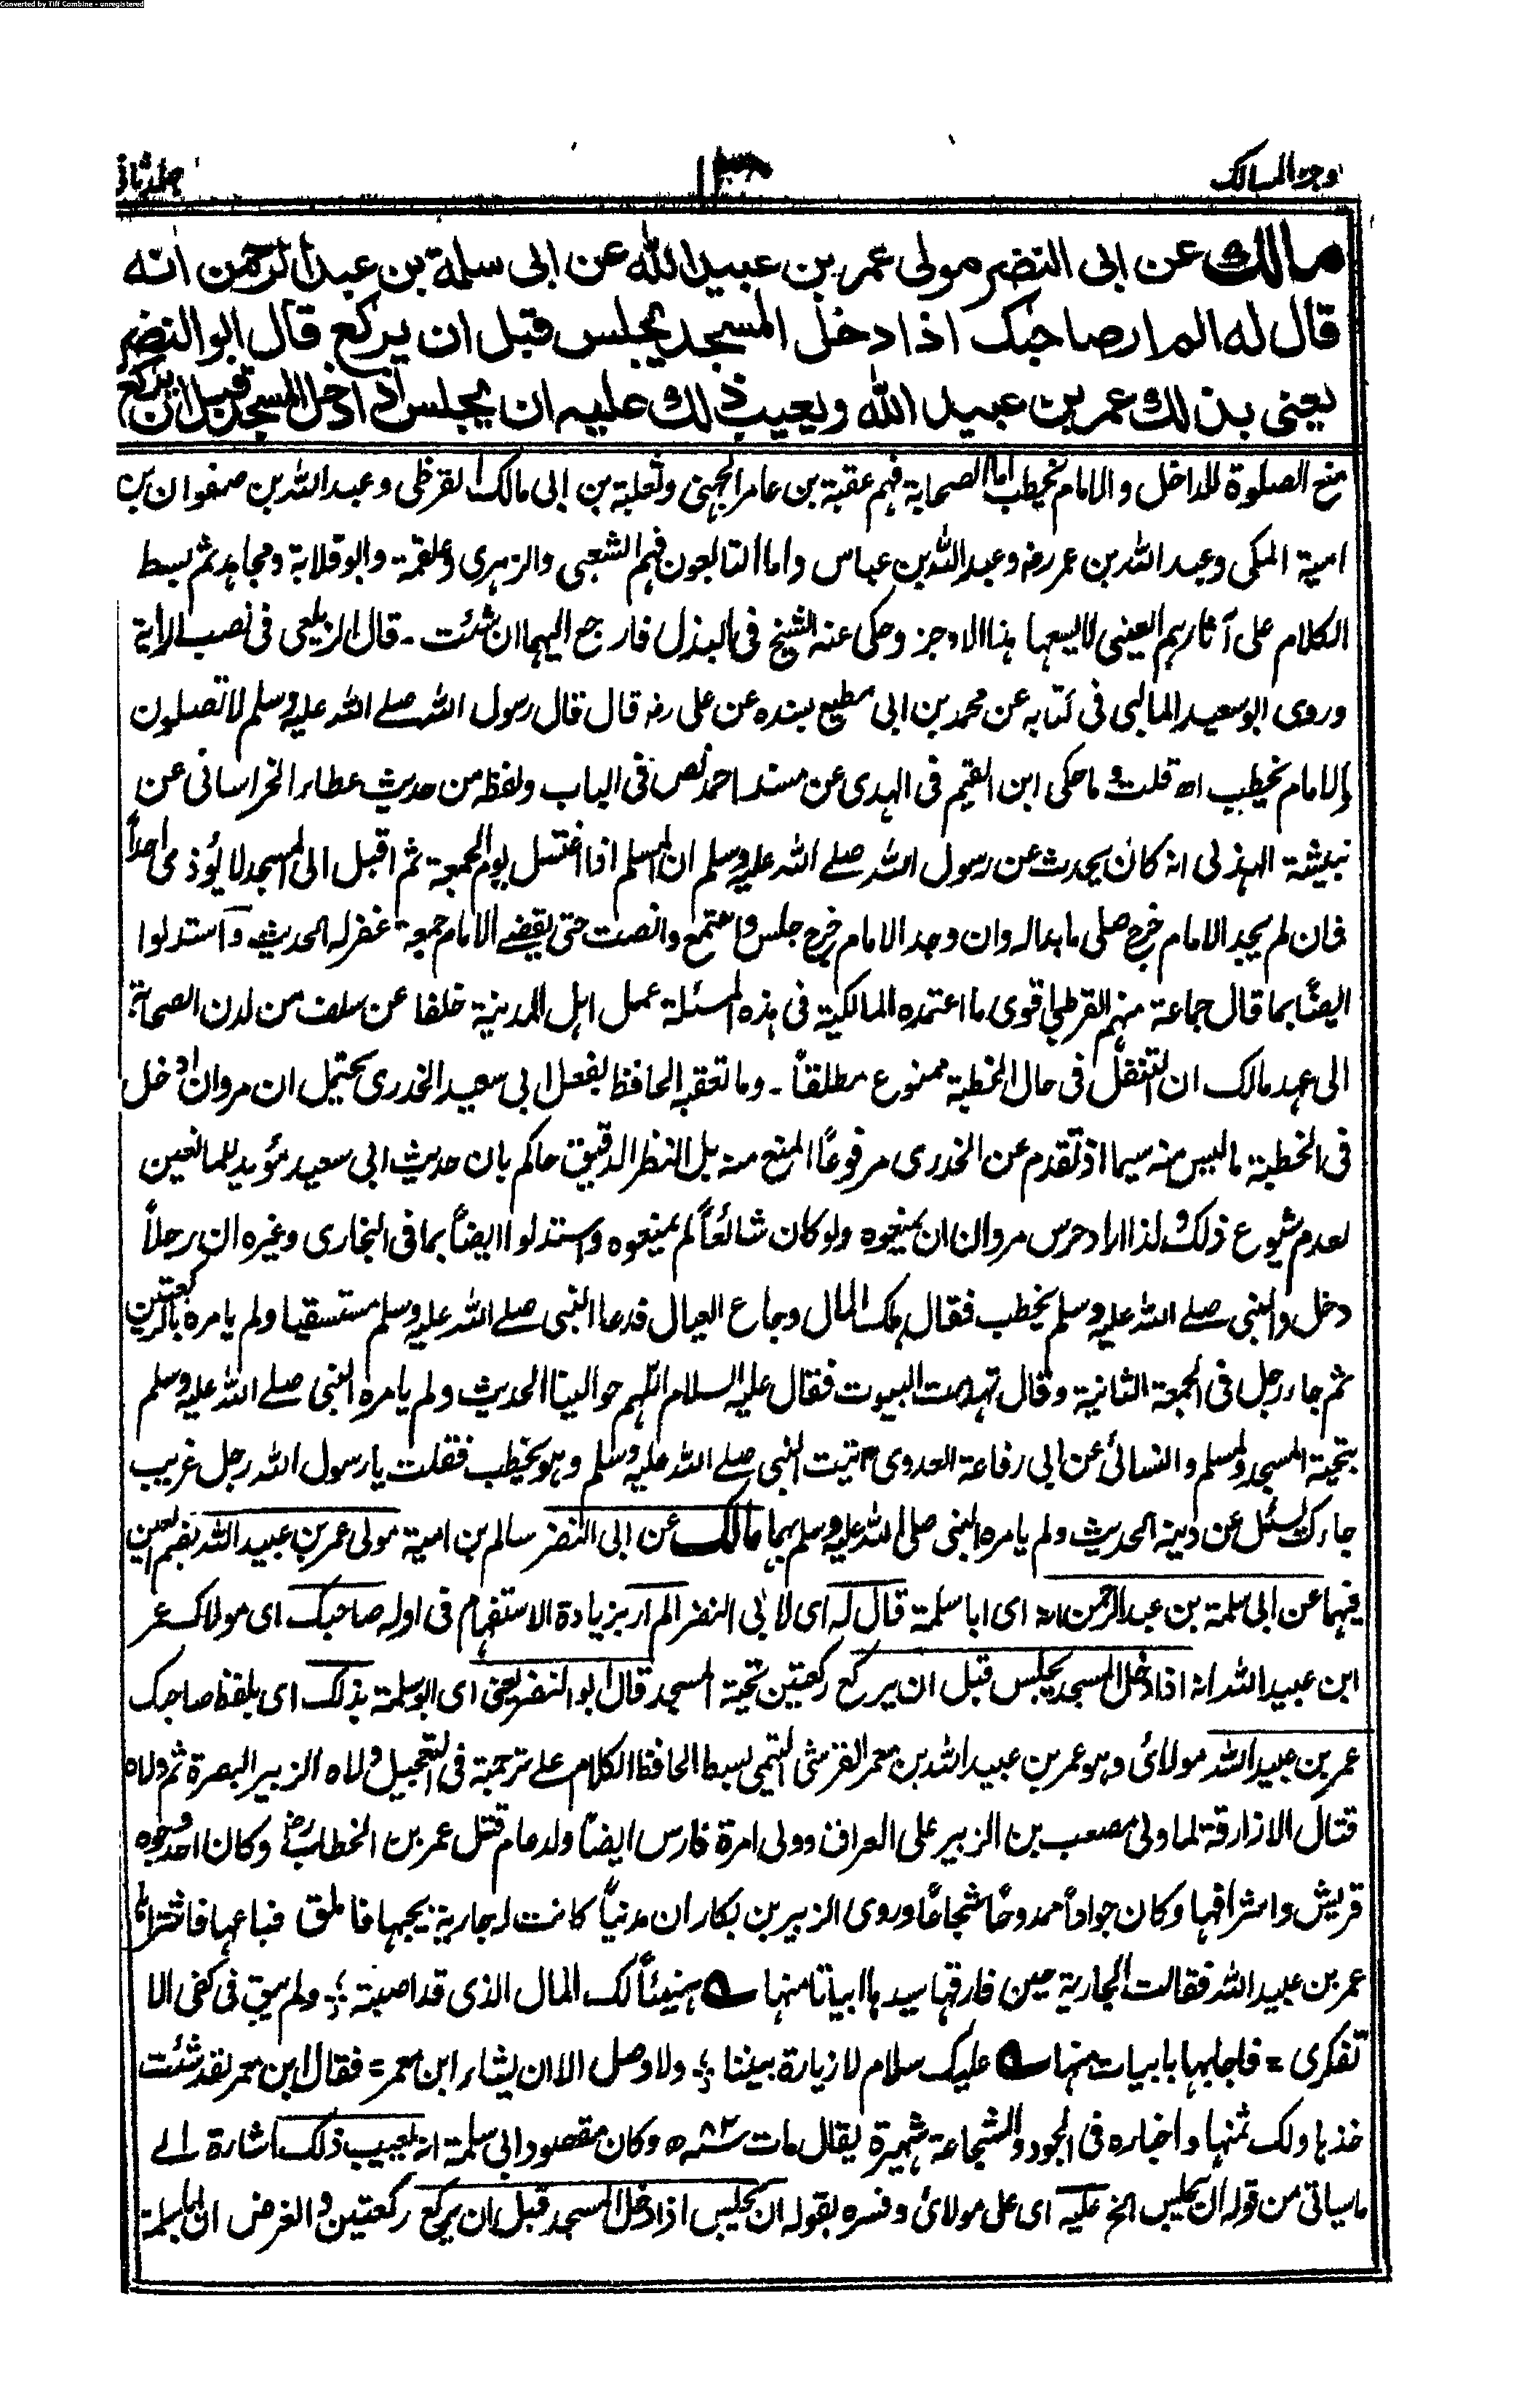 Converted by Tiff Combine - unregistered
وجز المسالك
١٣٨
جلد ثانی
مالك عن ابی النضر مولی عمر بن عبيد الله عن ابی سلمة بن عبد الرحمن انه
قال له الم ار صاحبك اذا دخل المسجد يجلس قبل ان يركع قال ابو النضر
يعنی بذلك عمر بن عبيد الله ويعيب ذلك عليه ان يجلس اذا دخل المسجد قبل ان يركع
منع الصلوة للداخل والامام يخطب اما الصحابة فہم عقبة بن عامر الجہنی وثعلبة بن ابی مالك القرظی وعبد اللہ بن صفوان بن
امية المكی وعبد اللہ بن عمر رضہ وعبد اللہ بن عباس واما التابعون فہم الشعبی والزہری وعلقمة وابو قلابة ومجاہد ثم بسط
الكلام علی آثارہم العينی لا يسعہا ہذا الاوجز وحكی عنہ الشيخ فی البذل فارجع اليہما ان شئت ۔ قال الزيلعی فی نصب الراية
وروی ابو سعيد المالينی فی كتابہ عن محمد بن ابی مطيع بسندہ عن علی رضہ قال قال رسول اللہ صلے اللہ عليہ وسلم لا تصلون
والامام يخطب اھ قلت وما حكی ابن القيم فی الہدی عن مسند احمد نص فی الباب ولفظہ من حديث عطاء الخراسانی عن
نبيشة الہذلی انہ كان يحدث عن رسول اللہ صلے اللہ عليہ وسلم ان المسلم اذا اغتسل يوم الجمعة ثم اقبل الی المسجد لا يؤذی احداً
فان لم يجد الامام خرج صلی ما بدا لہ وان وجد الامام خرج جلس واستمع وانصت حتی يقضے الامام جمعة غفر لہ الحديث واستدلوا
ايضًا بما قال جماعة منہم القرطبی اقوی ما اعتمدہ المالكية فی ہذہ المسئلة عمل اہل المدينة خلفا عن سلف من لدن الصحابة
الی عہد مالك ان التنفل فی حال الخطبة ممنوع مطلقاً ۔ وما تعقبہ الحافظ بفعل ابی سعيد الخدری يحتمل ان مروان ادخل
فی الخطبة ما ليس منہ سيما اذ تقدم عن الخدری مرفوعًا المنع منہ بل النظر الدقيق حاكم بان حديث ابی سعيد مؤيد للمانعين
لعدم شيوع ذلك ولذا اراد حرس مروان ان يمنعوہ ولو كان شائعاً لم يمنعوہ واستدلوا ايضاً بما فی البخاری وغيرہ ان رجلاً
دخل والنبی صلے اللہ عليہ وسلم يخطب فقال ہلك المال وجاع العيال فدعا النبی صلے اللہ عليہ وسلم مستسقيا ولم يامرہ بالركعتين
ثم جاء رجل فی الجمعة الثانية وقال تہدمت البيوت فقال عليہ السلام اللہم حوالينا الحديث ولم يامرہ النبی صلے اللہ عليہ وسلم
بتحية المسجد ولمسلم والنسائی عن ابی رفاعة العدوی اتيت النبی صلے اللہ عليہ وسلم وہو يخطب فقلت يا رسول اللہ رجل غريب
جاءك يسئل عن دينہ الحديث ولم يامرہ النبی صلی اللہ عليہ وسلم بہا مالك عن ابی النضر سالم بن امية مولی عمر بن عبيد اللہ بضم العين
فيہما عن ابی سلمة بن عبد الرحمن انہ ای ابا سلمة قال لہ ای لابی النضر الم ار بزيادة الاستفہام فی اولہ صاحبك ای مولاك عمر
ابن عبيد اللہ انہ اذا دخل المسجد يجلس قبل ان يركع ركعتين تحية المسجد قال ابو النضر يعنی ای ابو سلمة بذلك ای بلفظ صاحبك
عمر بن عبيد اللہ مولائی وہو عمر بن عبيد اللہ بن معمر القرشی التيمی بسط الحافظ الكلام علے ترجمتہ فی التعجيل ولاہ الزبير البصرة ثم ولاہ
قتال الازارقة لما ولی مصعب بن الزبير علی العراق وولی امرة فارس ايضا ولد عام قتل عمر بن الخطاب رضہ وكان احد وجوہ
قريش واشرافہا وكان جواداً ممدوحًا شجاعًا وروی الزبير بن بكار ان مدنياً كانت لہ جارية يحبہا فاملق فباعہا فاشتراہا
عمر بن عبيد اللہ فقالت الجارية حين فارقہا سيدہا ابياتا منہا ہنيئاً لك المال الذی قد اصبتہ ؛ ولم يبق فی كفی الا
تفكری = فاجابہا بابيات منہا عليك سلام لا زيارة بيننا ؛ ولا وصل الا ان يشاء ابن معمر = فقال ابن معمر لقد شئت
خذہا ولك ثمنہا واخبارہ فی الجود والشجاعة شہيرة يقال مات سنہ ٨٢ ھ وكان مقصود ابی سلمة انہ يعيب ذلك اشارة الے
ما سياتی من قولہ ان يجلس الخ عليہ ای علی مولائی وفسرہ بقولہ ان يجلس اذا دخل المسجد قبل ان يركع ركعتين والغرض ان ابا سلمة